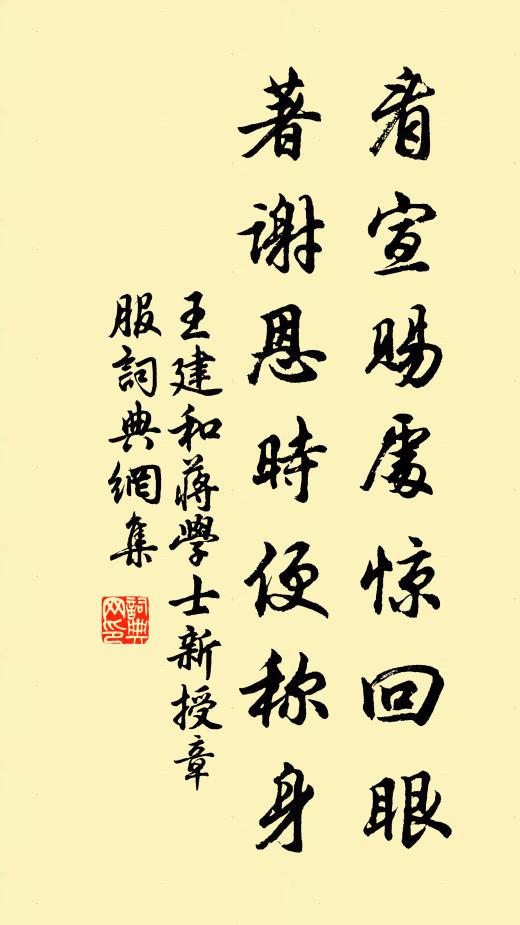 看宣賜處惊回眼
著謝恩時便称身
王建和蔣學士新授章
服詞典網集
詞典
网印